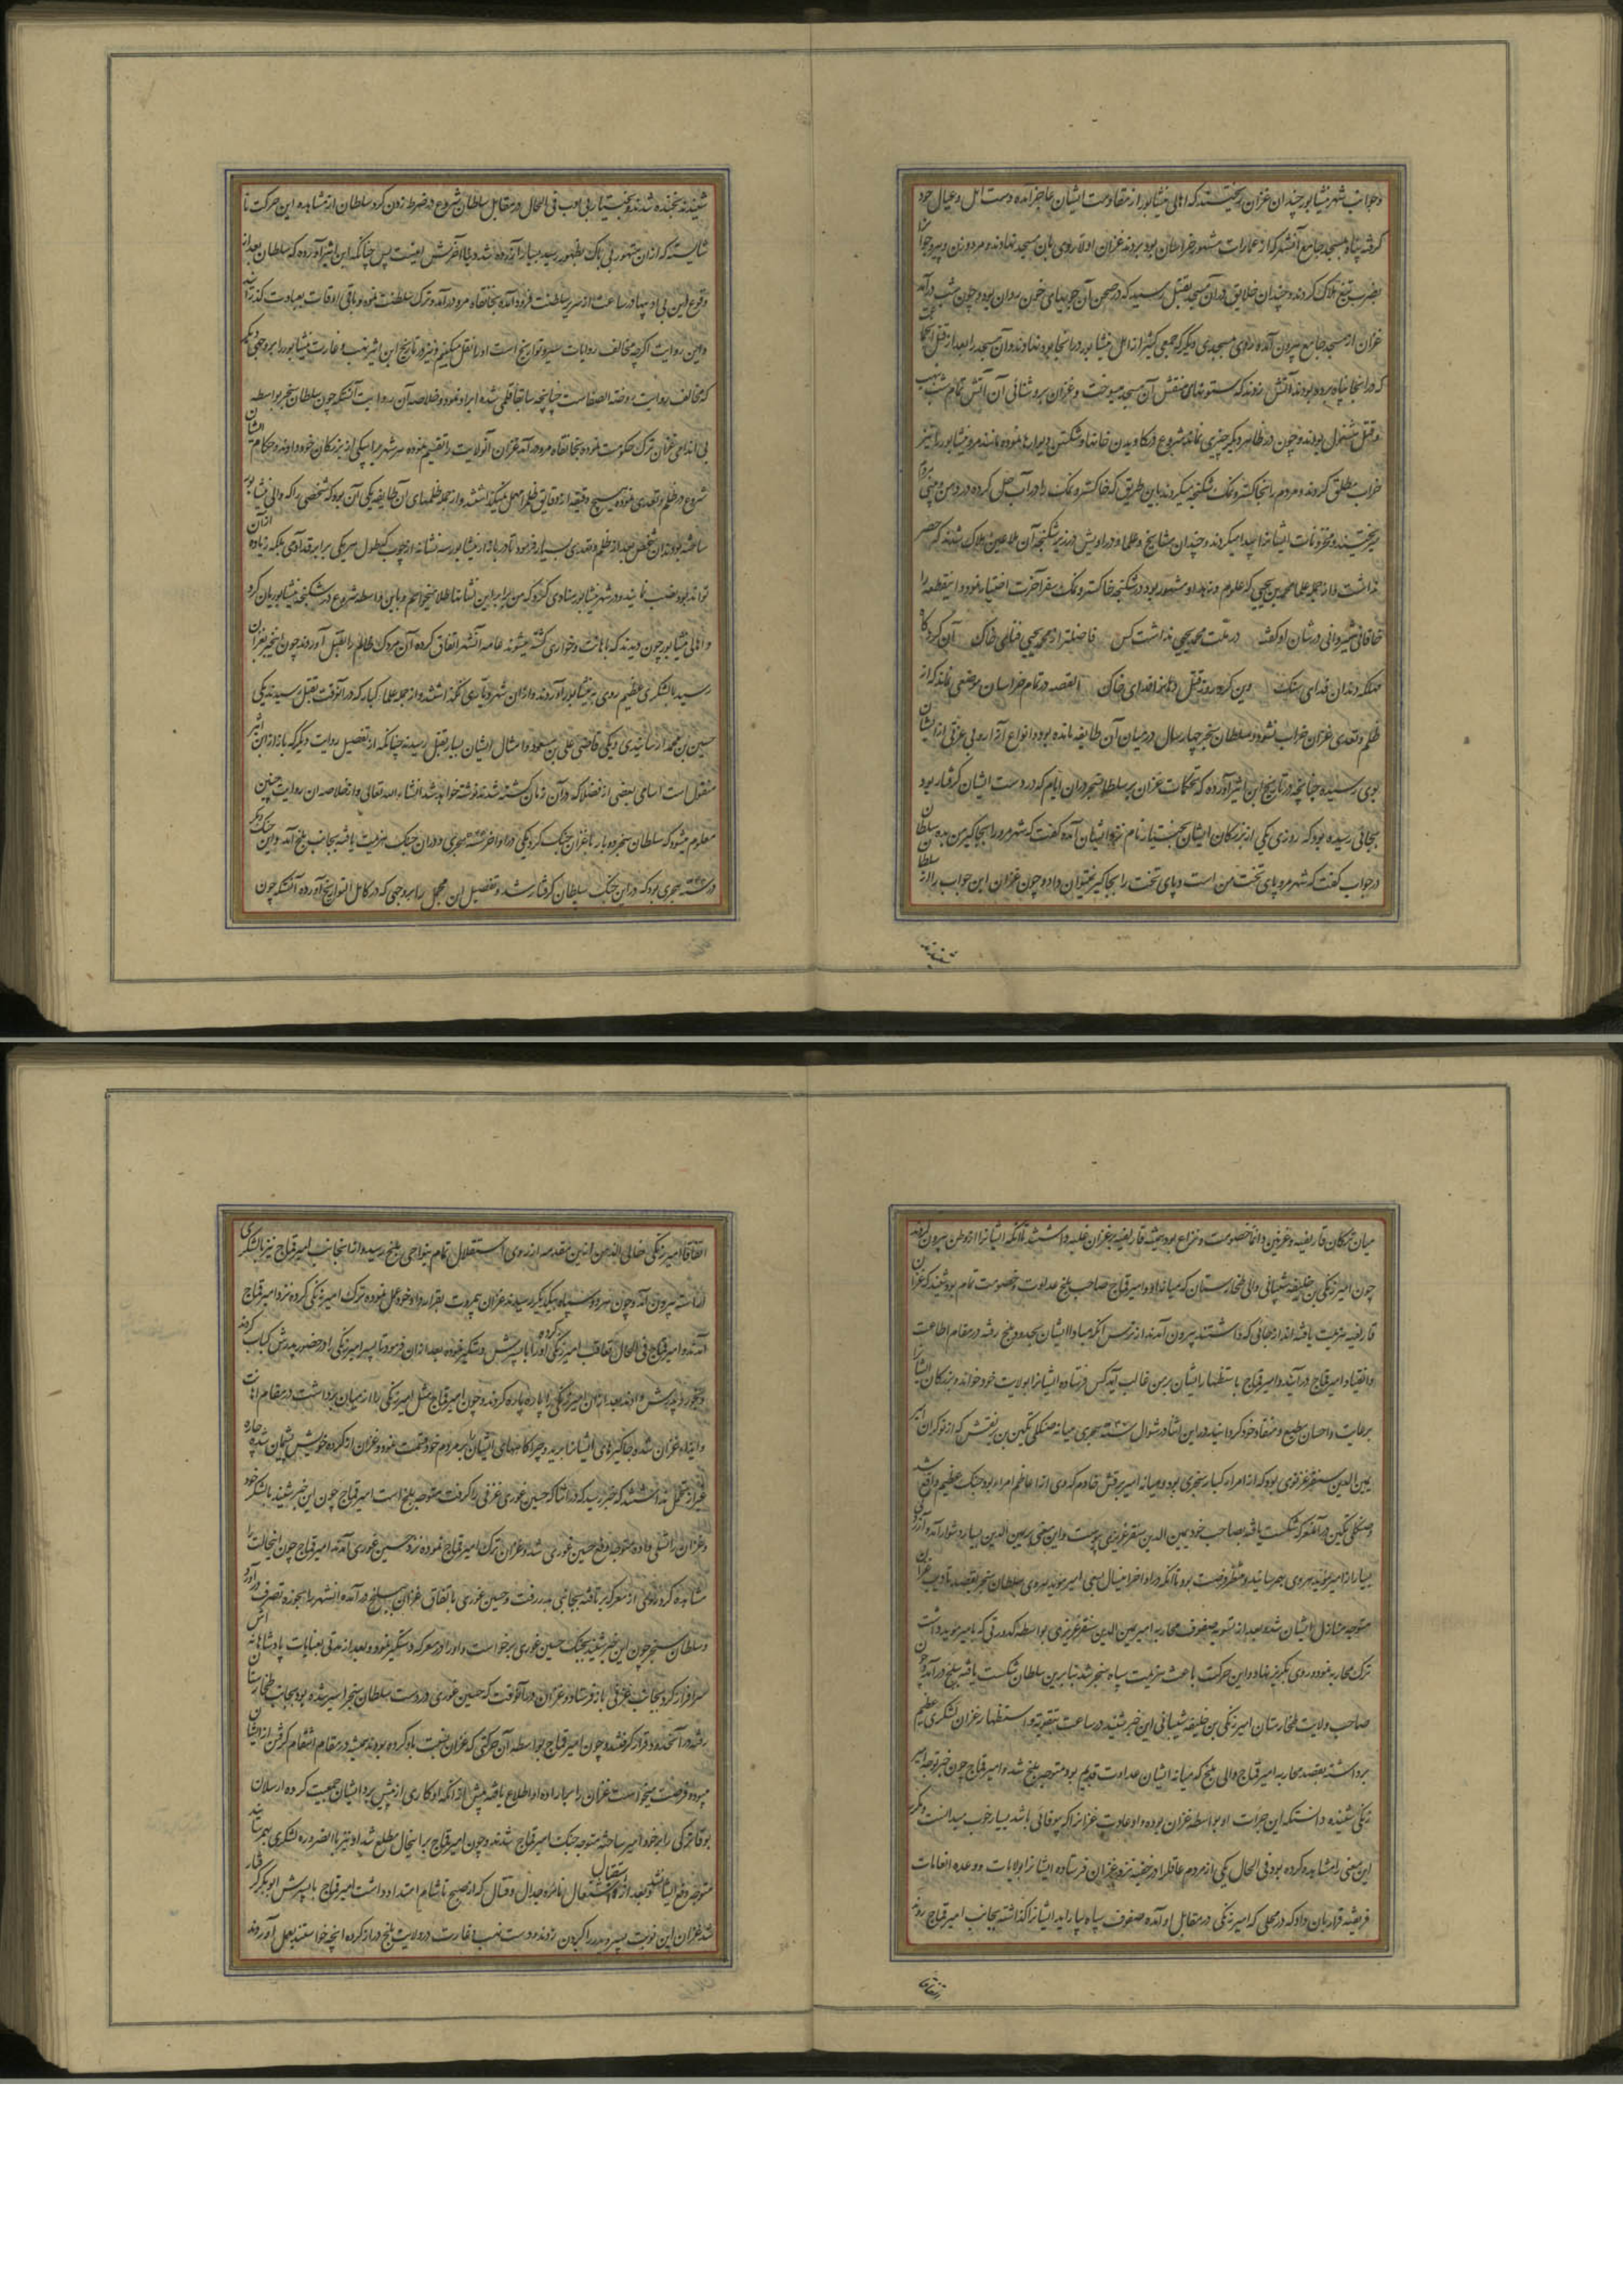 و جوانب شهر نیشابور چندان غزان ریختند که اهالی نیشابور از مقاومت ایشان عاجز آمده دست اهل و عیال خود
گرفته پناه بمسجد جامع آنشهر که از عمارات مشهور خراسان بود بردند غزان اولا روی بان مسجد نهادند و مرد و زن و پیر و جوانرا
بضرب تیغ هلاک کردند و چندان خلایق در آن مسجد بقتل رسید که در صحن آن جویهای خون روان بود و چون شب درآمد
غزان از مسجد جامع بیرون آمده روی بمسجدی دیگر که جمعی کثیر از اهل نیشابور در آنجا بودند نهادند و آن مسجد را بعد از قتل
که در آنجا پناه برده بودند آتش زدند که ستونهای منقش آن مسجد میسوخت و غزان بروشنائی آن آتش تمام شب بنهب
و قتل مشغول بودند و چون در ظاهر دیگر چیزی نماند شروع در کاویدن خانها و شکستن دیوارها نموده مانند مرو نیشابور را نیز
خراب مطلق کردند و مردم را بخاکستر و نمک شکنجه میکردند باین طریق که خاکستر و نمک را در آب حل کرده در دهن و بینی مردم
میریختند و مخزونات ایشانرا پیدا میکردند و چندان مشایخ و علما و دراویش در زیر شکنجه آن ملاعین هلاک شدند که حصر
نداشت و از جمله علما محمد بن یحیی که بعلوم و زهد او مشهور بود در شکنجه خاکستر و نمک سفر آخرت اختیار نمود و این قطعه را
خاقانی شیروانی در شان او گفته در ملت محمد یحیی نداشت کس فاضلتر از محمد یحیی فنای خاک آن کرد گاه
تهلکه دندان فدای سنگ وین کرد روز قتل دهانرا فدای خاک القصه در تمام خراسان موضعی نماند که از
ظلم و تعدی غزان خراب نشود و سلطان سنجر چهار سال در میان آن طایفه مانده بود و انواع آزار و بی عزتی از ایشان
بوی رسیده چنانچه در تاریخ ابن اثیر آورده که تحکمات غزان بر سلطان سنجر در ان ایام که در دست ایشان گرفتار بود
بجائی رسیده بود که روزی یکی از بزرگان ایشان بختیار نام نزد ایشان آمده گفت که شهر مرو را بجاگیر من بده سلطان
در جواب گفت که شهر مرو پای تخت من است و پای تخت را بجاگیر نمیتوان داد و چون غزان این جواب را از سلطان
شنیدند
شنیدند بخنده شدند و بختیار بی ادب فی الحال در مقابل سلطان شروع در ضرطه زدن کرد سلطان از مشاهده این حرکت نا
شایسته که از ان متهور بی باک بظهور رسید بسیار آزرده شد و بنا آخرتش اینست پس چنانکه ابن اثیر آورده که سلطان بعد از
وقوع این بی ادبیها در ساعت از سریر سلطنت فرود آمده بخانقاه مرو درآمد و ترک سلطنت نموده باقی اوقات بعبادت گذرانید
و این روایت اگرچه مخالف روایات سیر و تواریخ است اما نقل میکنیم و نیز در تاریخ ابن اثیر نهب و غارت نیشابور را بر وجهی دیگر
که مخالف روایت روضة الصفاست چنانچه سابقا قلمی شده ایراد نموده و خلاصه آن روایت آنستکه چون سلطان سنجر بواسطه
بی اندامی غزان ترک حکومت نموده بخانقاه مرو درآمد غزان آنولایت را تقسیم نموده هر شهر را بیکی از بزرگان خود دادند و حکام ایشان
شروع در ظلم و تعدی نموده هیچ دقیقه از دقایق ظلم مهمل نمیگذاشتند و از جمله ظلمهای آن طایفه یکی آن بود که شخصی را که والی نیشابور
ساخته بودند آن شخص بعد از ظلم و تعدی بسیار فرمود تا در بازار نیشابور سه نشانه از چوب که طول هر یکی برابر قد آدمی بلکه زیاده از آن
تواند بود نصب نمایند و در شهر نیشابور منادی کرد که من برابر این نشانها طلا میخواهم و باین واسطه شروع در شکنجه نیشابوریان کرد
و اهالی نیشابور چون دیدند که باهانت و خواری کشته میشوند عامه آنشهر اتفاق کرده آن مردک ظالم را بقتل آوردند چون این خبر بغزان
رسید با لشکری عظیم روی بنیشابور آوردند و از ان شهر دیاری نگذاشتند و از جمله علما کبار که در آنوقت بقتل رسیدند یکی
حسین بن محمد ارسابندی و یکی قاضی علی بن مسعود و امثال ایشان بسیار بقتل رسیدند چنانکه از تفصیل روایت دیگر که باز از ابن اثیر
منقول است اسامی بعضی از فضلا که در آن زمان کشته شدند نوشته خواهد شد انشاء الله تعالی و از خلاصه ان روایت چنین
معلوم میشود که سلطان سنجر دو بار با غزان جنگ کرد یکی در اواخر سنه هجری و در ان جنگ هزیمت یافته بجانب بلخ آمد و این جنگ دیگر
در سنه هجری بود که در این جنگ سلطان گرفتار شد و تفصیل این مجمل را بر وجهی که در کامل التواریخ آورده آنستکه چون
میان ترکان قارلغیه و غزنین دائما خصومت و نزاع بود و همیشه قارلغیه بر غزان غلبه داشتند تا آنکه ایشانرا از وطن بیرون کردند
چون امیر زنگی بن خلیفه شیبانی والی طخارستان که میانه او و امیر قماج صاحب بلخ عداوت و خصومت تمام بود شنید که غزان
قارلغیه هزیمت یافته اند از جائی که داشتند بیرون آمدند از ترس آنکه مبادا ایشان بحدود بلخ رفته در مقام اطاعت
و انقیاد امیر قماج درآیند و امیر قماج باستظهار ایشان بر من غالب آید کس فرستاده ایشانرا بولایت خود خواند و بزرگان ایشانرا
برعایت و احسان مطیع و منقاد خود گردانید و در این اثنا در شوال سنه هجری میانه منکلی تکین بن یرنقش که از نوکران امیر
یمین الدین سنقر غزنوی بود که از امراء کبار سنجری بود و میانه امیر برقش خادم که وی از اعاظم امراء بود جنگ عظیم واقع شد
و منکلی تکین در آن معرکه شکست یافته بصاحب خود یمین الدین سنقر غزیزی پیوست و این معنی بر یمین الدین بسیار دشوار آمد و آزردگی
بسیار از امیر موید بهم رسانید و منتظر فرصت بود تا آنکه در اواخر امسال یعنی امیر موید بهروی سلطان سنجر بقصد تادیب غزان
متوجه منازل ایشان شد و بعد از تسویه صفوف محاربه امیر یمین الدین سنقر غزیزی بواسطه کدورتی که بامیر موید داشت
ترک محاربه نموده روی بگریز نهاد و این حرکت باعث هزیمت سپاه سنجر شد بنابرین سلطان شکست یافته ببلخ درآمد و چون
صاحب ولایت طخارستان امیر زنگی بن خلیفه شیبانی این خبر شنید در ساعت بتقویت و استظهار غزان لشکری عظیم
برداشته بقصد محاربه امیر قماج والی بلخ که میانه ایشان عداوت قدیم بود متوجه بلخ شد و امیر قماج چون خبر توجه امیر
زنگی شنید دانستکه این جرأت او بواسطه غزان بوده و او عادت غزانرا که بیوفائی باشد بسیار خوب میدانست و مکرر
این معنی را مشاهده کرده بود فی الحال یکی از مردم عاقل را در خفیه نزد غزان فرستاده ایشانرا بولایات و وعده انعامات
فریفته قرار بان داد که در محلی که امیر زنگی در مقابل او آمده صفوف سپاه بیاراید ایشانرا گذاشته بجانب امیر قماج روند
اتفاقا امیر زنگی خالی الذهن از این مقدمه از روی استقلال تمام بنواحی بلخ رسید و از آنجانب امیر قماج نیز با لشکری
آراسته بیرون آمد و چون هر دو سپاه بیکدیگر رسیدند غزان بی مروت بقرارداد خود عمل نموده ترک امیر زنگی کرده نزد امیر قماج
آمدند و امیر قماج فی الحال تعاقب امیر زنگی کرده او را با پسرش دستگیر نموده بعد از ان فرمود تا پسر امیر زنگی را در حضور پدرش کباب کردند
و بخورد پدرش دادند بعد از ان امیر زنگی را پاره پاره کردند و چون امیر قماج مثل امیر زنگی را از میان برداشت در مقام اهانت
و ایذاء غزان شد و جاگیرهای ایشانرا برید و چراگاههای ایشان را بمردم خود قسمت نمود و غزان از کرده خویش پشیمان شده چاره
بغیر از تحمل نداشتند که خبر رسید که در اثنا که حسین غوری غزنی را گرفته متوجه بلخ است امیر قماج چون این خبر شنید با لشکر خود
و غزان را تسلی داده متوجه دفع حسین غوری شد و غزان ترک امیر قماج نموده نزد حسین غوری آمدند امیر قماج چون اینحالت را
مشاهده کرد روی از معرکه برتافته بجانبی بدر رفت و حسین غوری باتفاق غزان ببلخ درآمده آنشهر را بحوزه تصرف درآورد
و سلطان سنجر چون این خبر شنید بجنگ حسین غوری برخواست و او را در معرکه دستگیر نمود و بعد از مدتی بعنایات پادشاهانه اش
سرافراز کرد بجانب غزنی باز فرستاد و غزان در آنوقت که حسین غوری در دست سلطان سنجر اسیر شده بود بجانب طخارستان
رفته در آنحدود قرار گرفتند و چون امیر قماج بواسطه آن حرکتی که غزان نسبت باو کرده بودند همیشه در مقام انتقام گرفتن از ایشان
میبود و فرصت میخواست غزان را بر اراده او اطلاع یافته پیش از آنکه او کاری از پیش برد ایشان جمعیت کرده ارسلان
بوقا ترکی را بر خود امیر ساخته متوجه جنگ امیر قماج شدند و چون امیر قماج بر اینحال مطلع شد او نیز بالضروره لشکری بهم رسانیده
متوجه دفع ایشان شد و بعد از اشتعال نائره جدال و قتال که از صبح تا شام امتداد داشت امیر قماج با پسرش ابوبکر گرفتار
شد غزان این نوبت پسر و پدر را گردن زدند و دست نهب و غارت در ولایت بلخ دراز کرده آنچه خواستند بعمل آوردند